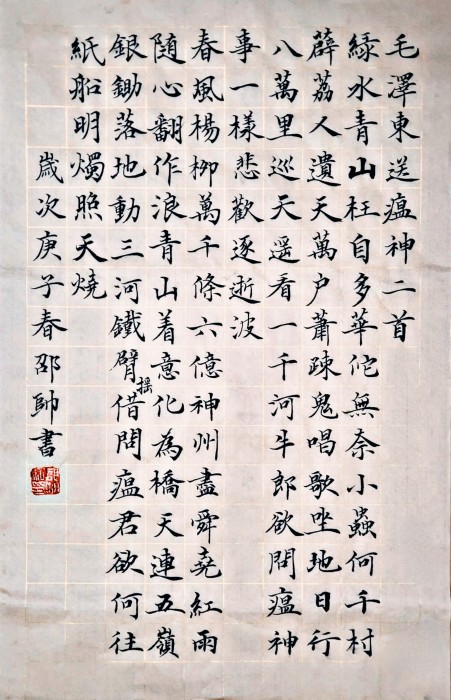 毛澤東送瘟神二首
綠水青山枉自多華佗無奈小蟲何千村
薜荔人遺矢萬户蕭疎鬼唱歌坐地日行
八萬里巡天遥看一千河牛郎欲問瘟神
事一樣悲歡逐逝波
春風楊栁萬千條六億神州盡舜堯紅雨
随心翻作浪青山着意化為橋天連五嶺
銀鋤落地動三河鐵臂摇借問瘟君欲何往
紙船明燭照天燒
歲次庚子春邵帥書